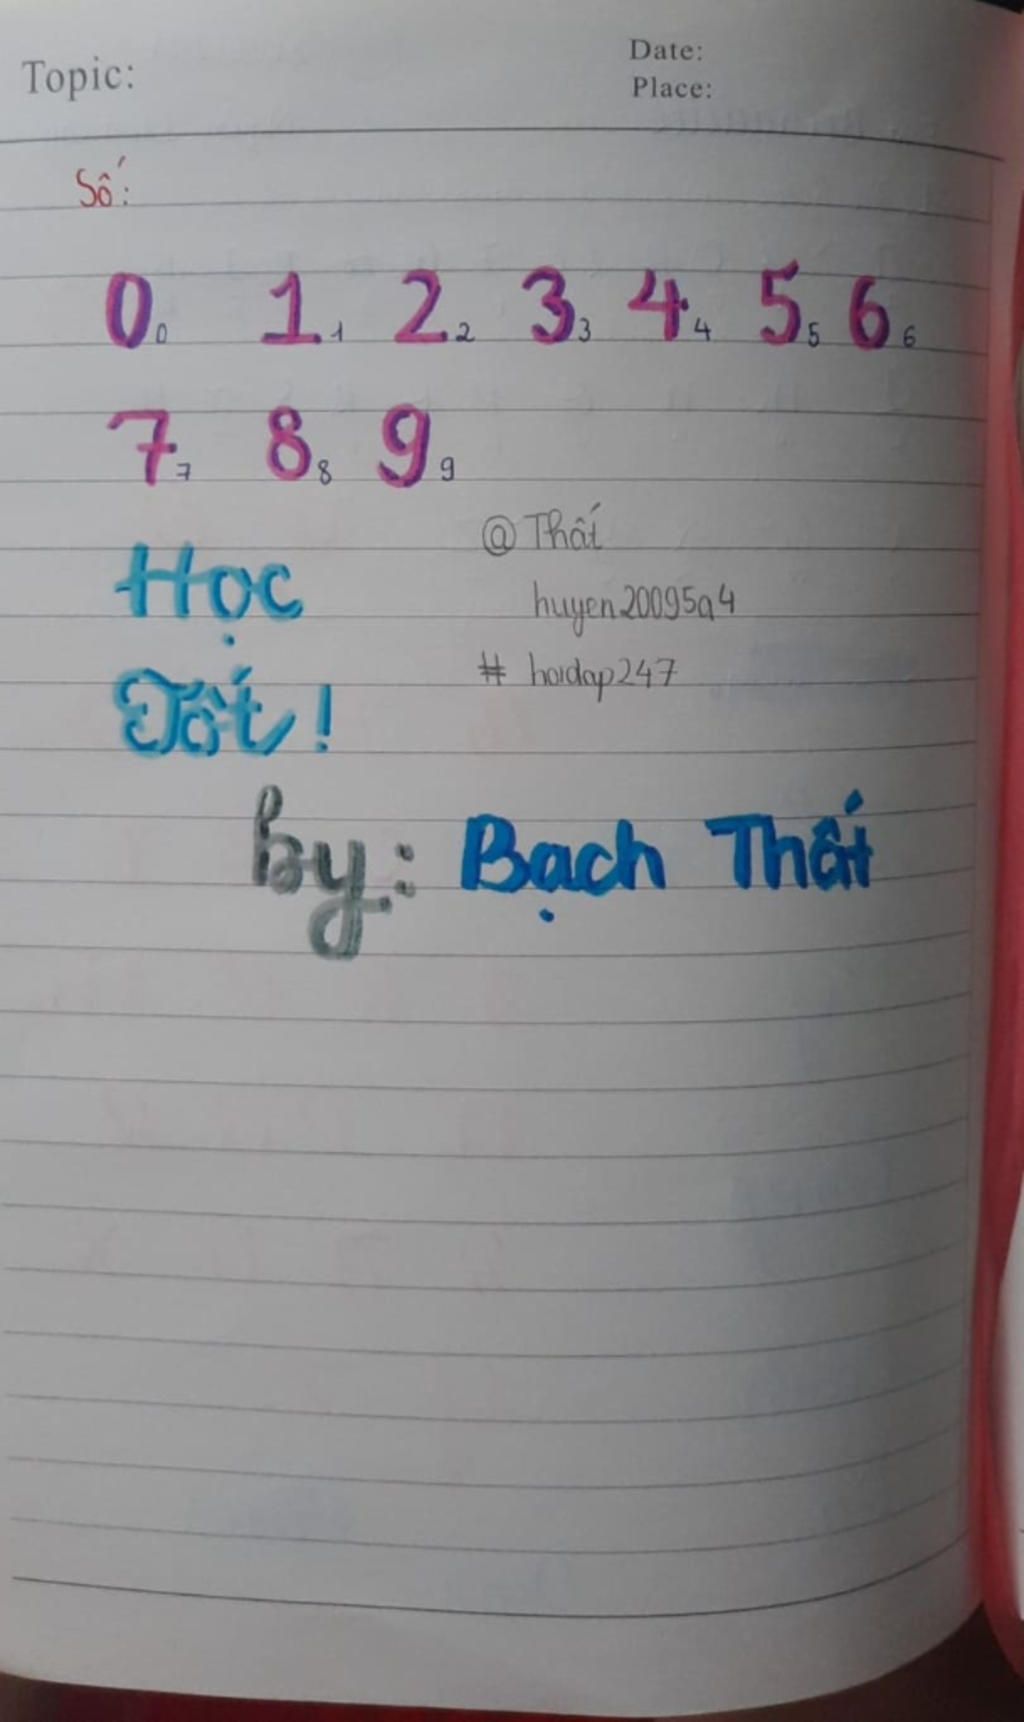 Topic:
Date:
Place:
Số:
0 0 1 1 2 2 3 3 4 4 5 5 6 6
7 7 8 8 9 9
@ Thất
huyen20095a4
# hoidap247
Học
Tốt!
by: Bạch Thất